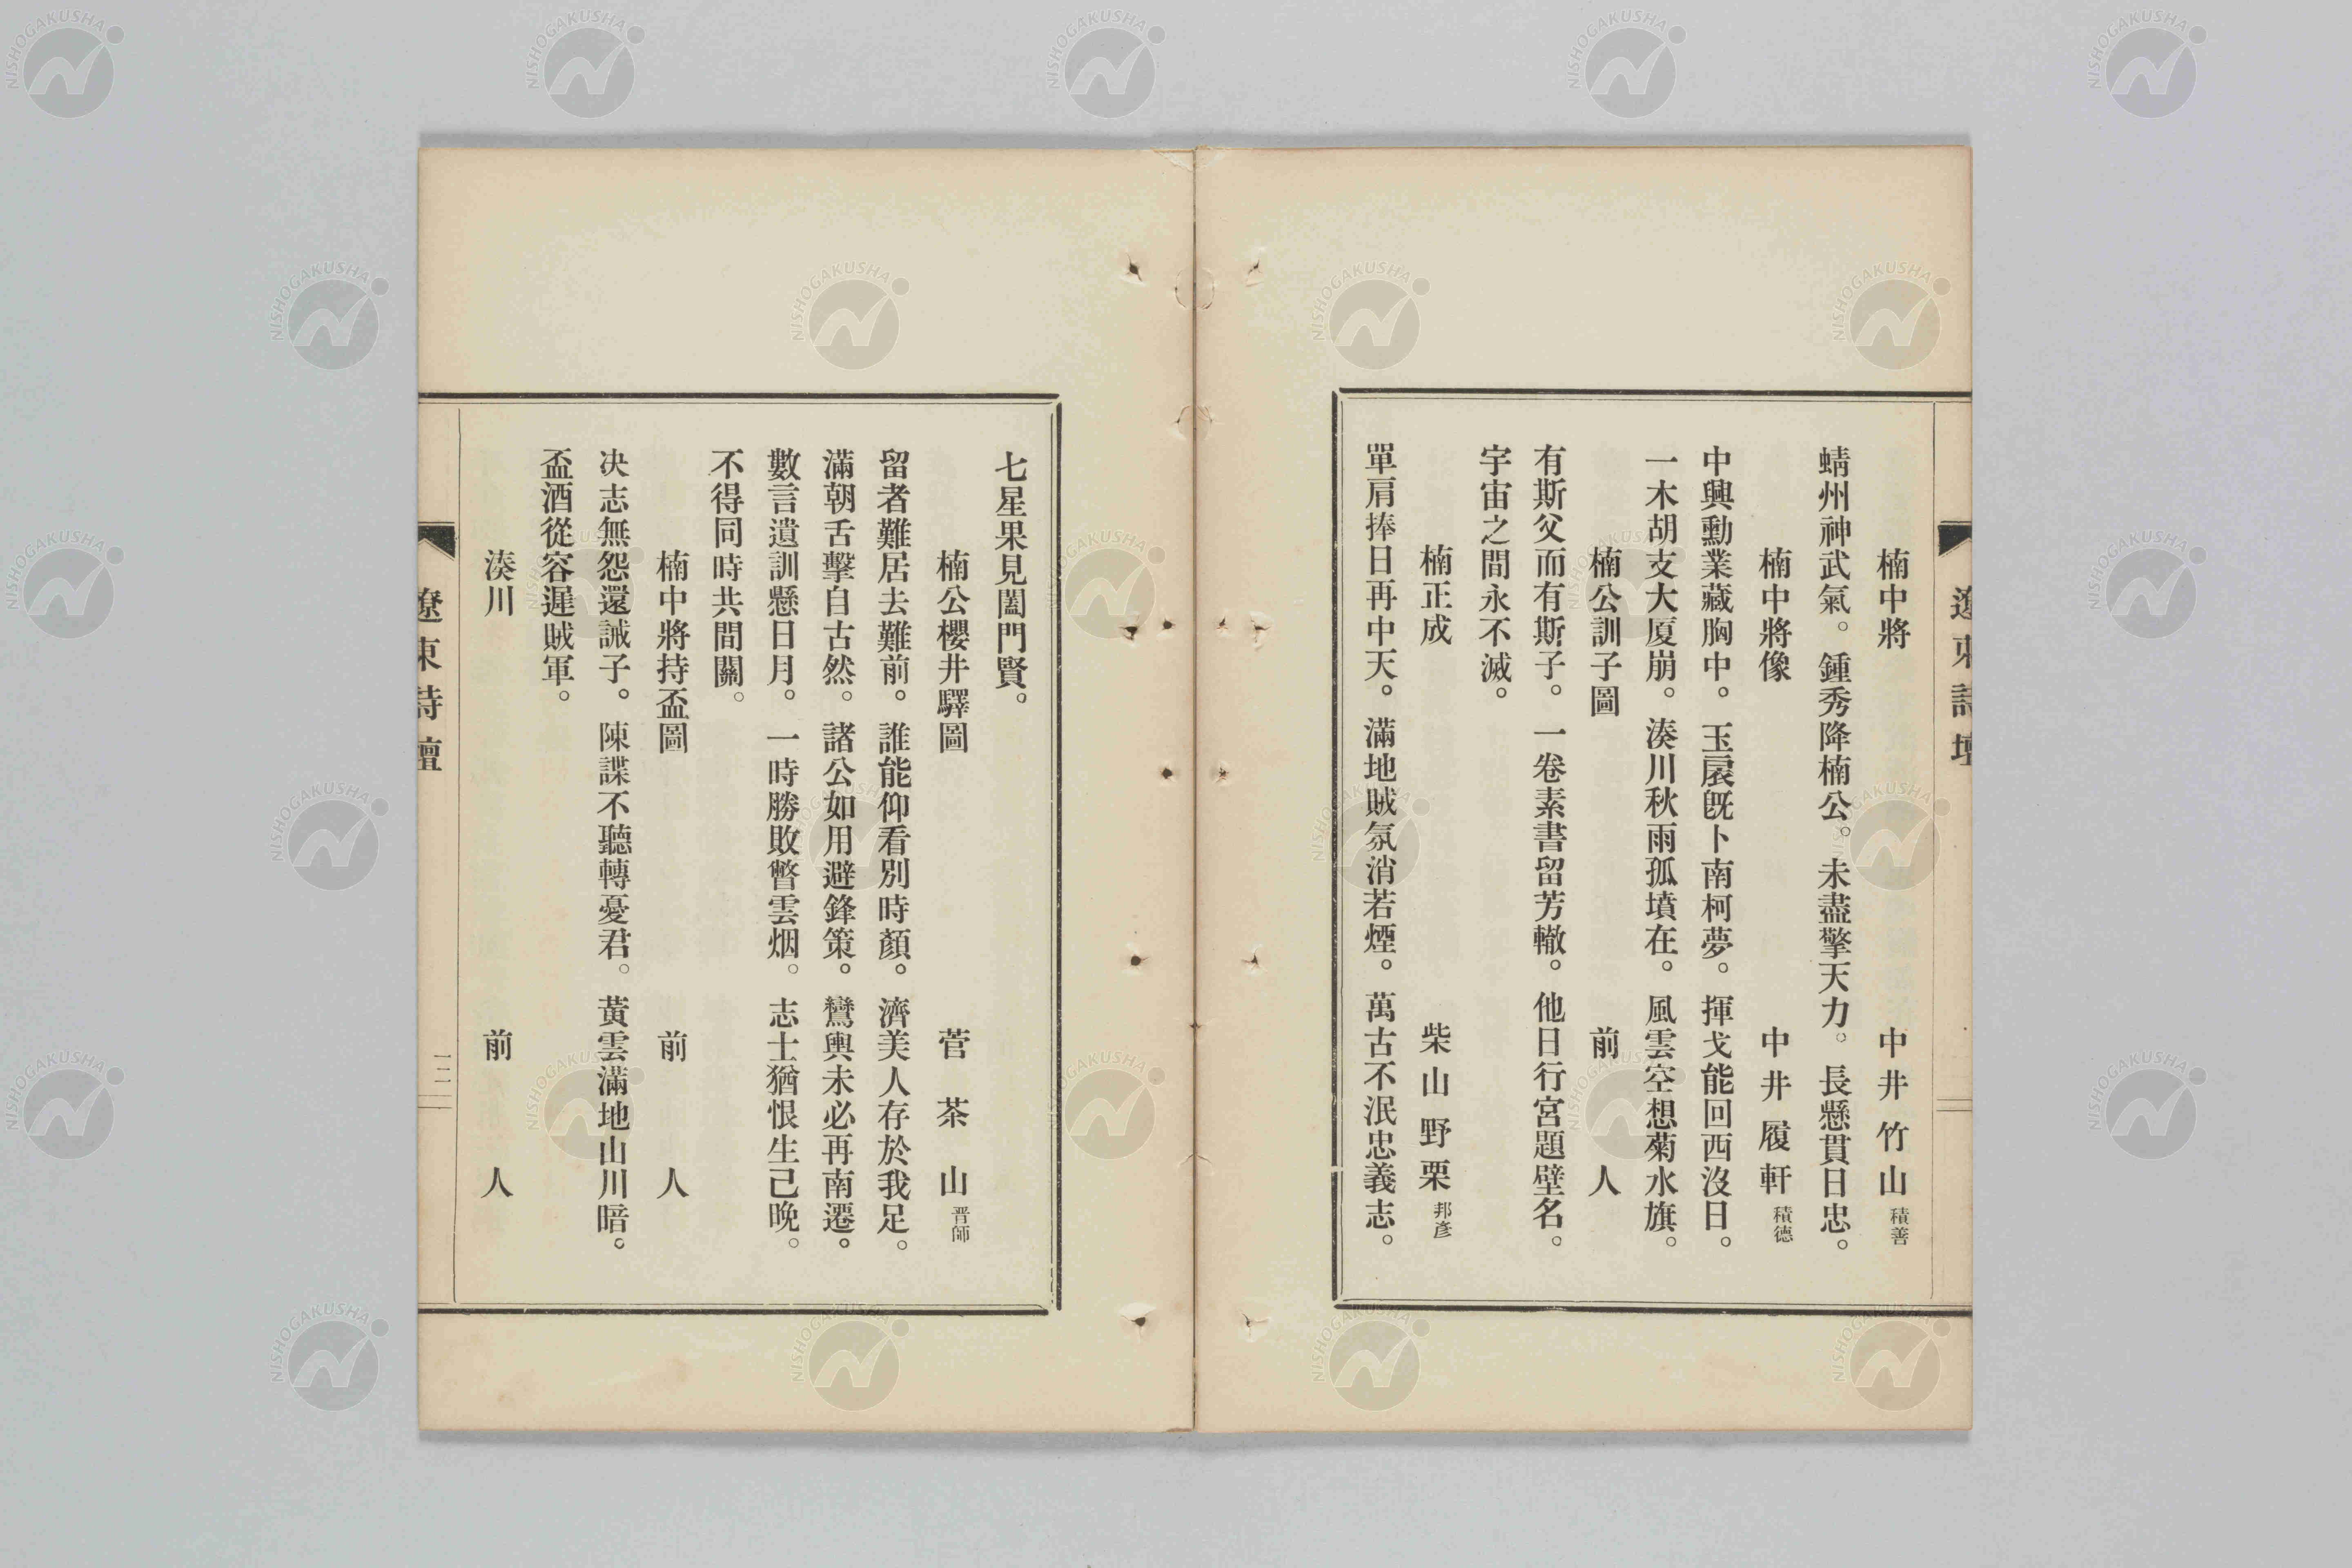 遼東詩壇
楠中將　中井竹山 積善
蜻州神武氣。鍾秀降楠公。未盡擎天力。長懸貫日忠。
楠中將像　中井履軒 積德
中興勳業藏胸中。玉扆旣卜南柯夢。揮戈能回西沒日。
一木胡支大厦崩。湊川秋雨孤墳在。風雲空想菊水旗。
楠公訓子圖　前人
有斯父而有斯子。一卷素書留芳轍。他日行宮題壁名。
宇宙之間永不滅。
楠正成　柴山野栗 邦彥
單肩捧日再中天。滿地賊氛消若煙。萬古不泯忠義志。
七星果見闔門賢。
楠公櫻井驛圖　菅茶山 晋師
留者難居去難前。誰能仰看別時顏。濟美人存於我足。
滿朝舌擊自古然。諸公如用避鋒策。鸞輿未必再南遷。
數言遺訓懸日月。一時勝敗瞥雲烟。志士猶恨生己晚。
不得同時共間關。
楠中將持盃圖　前人
决志無怨還誡子。陳諜不聽轉憂君。黃雲滿地山川暗。
盃酒從容遲賊軍。
湊川　前人
遼東詩壇
一二
NISHOGAKUSHA